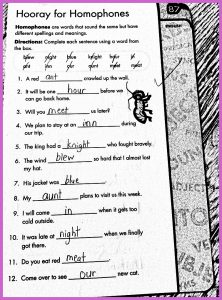 Hooray for Homophones
87
Homophones are words that sound the same but have
different spellings and meanings.
Directions: Complete each sentence using a word from
the box.
1. A red ant crawled up the wall.
2. It will be one hour before we
can go back home.
3. Will you meet us later?
4. We plan to stay at an inn during
our trip.
5. The king had a knight who fought bravely.
6. The wind blew so hard that I almost lost
my hat.
7. His jacket was blue.
8. My aunt plans to visit us this week.
9. I will come in when it gets too
cold outside.
10. It was late at night when we finally
got there.
11. Do you eat red meat.
12. Come over to see our new cat.